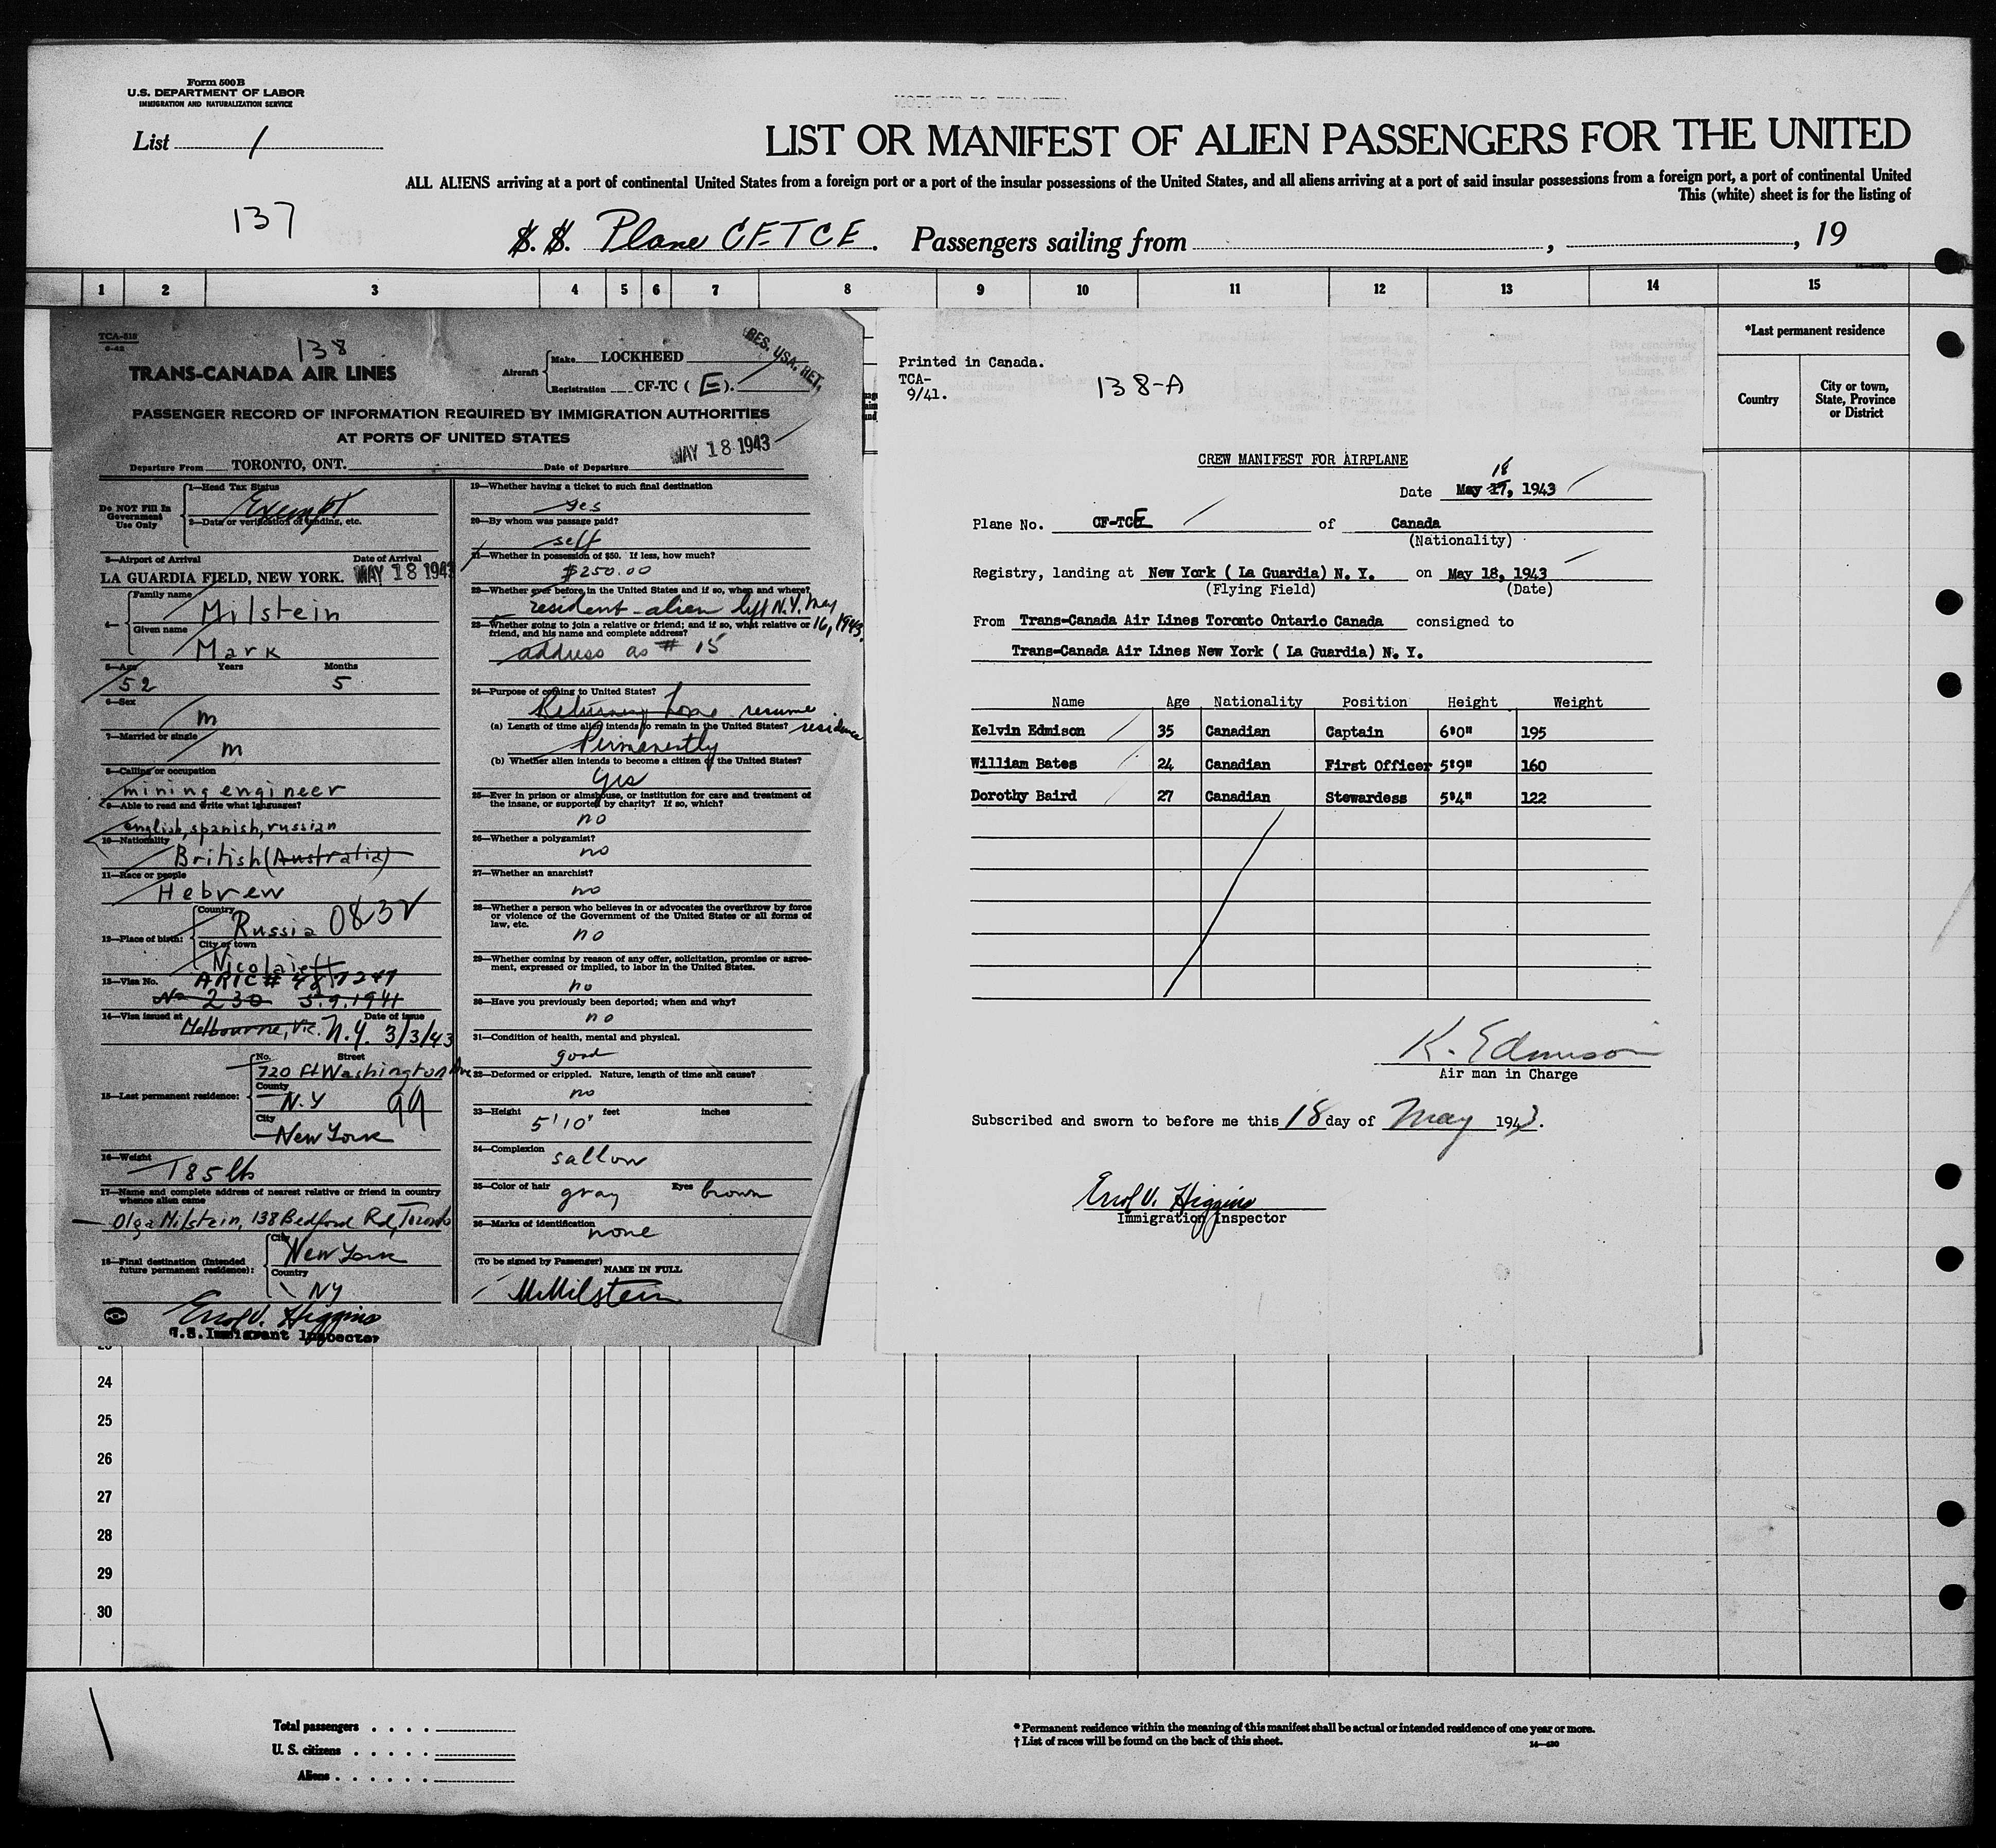 Form 500B
U.S. DEPARTMENT OF LABOR
IMMIGRATION AND NATURALIZATION SERVICE
List 1
LIST OR MANIFEST OF ALIEN PASSENGERS FOR THE UNITED
ALL ALIENS arriving at a port of continental United States from a foreign port or a port of the insular possessions of the United States, and all aliens arriving at a port of said insular possessions from a foreign port, a port of continental United
This (white) sheet is for the listing of
137
S. S. Plane CF-TCE. Passengers sailing from , , 19
1 2 3 4 5 6 7 8 9 10 11 12 13 14 15
*Last permanent residence
Country
City or town, State, Province or District
TCA-518
6-42
138
TRANS-CANADA AIR LINES
Aircraft
Make LOCKHEED
Registration CF-TC ( E ).
RES. USA. RET.
PASSENGER RECORD OF INFORMATION REQUIRED BY IMMIGRATION AUTHORITIES
AT PORTS OF UNITED STATES
MAY 18 1943
Departure From TORONTO, ONT. Date of Departure
Do NOT Fill In Government Use Only
1—Head Tax Status
Exempt
2—Date or verification of landing, etc.
3—Airport of Arrival Date of Arrival
LA GUARDIA FIELD, NEW YORK. MAY 18 1943
4—
Family name
Milstein
Given name
Mark
5—Age Years Months
52 5
6—Sex
m
7—Married or single
m
8—Calling or occupation
mining engineer
9—Able to read and write what languages?
english, spanish, russian
10—Nationality
British (Australia)
11—Race or people
Hebrew
12—Place of birth:
Country
Russia 083V
City or town
Nicolaieff
13—Visa No. ARIC #
No 230 5.9.1941
14—Visa issued at Date of issue
Melbourne, Vic. N.Y. 3/3/43
15—Last permanent residence:
No. Street
720 Ft Washington Ave
County
N.Y 99
City
New York
16—Weight
185 lb
17—Name and complete address of nearest relative or friend in country
whence alien came
Olga Milstein, 138 Bedford Rd, Toronto
18—Final destination (Intended
future permanent residence):
City
New York
Country
NY
Errol V. Higgins
U.S. Immigrant Inspector
19—Whether having a ticket to such final destination
yes
20—By whom was passage paid?
self
21—Whether in possession of $50. If less, how much?
$250.00
22—Whether ever before in the United States and if so, when and where?
resident-alien left N.Y. May
16, 1943.
23—Whether going to join a relative or friend; and if so, what relative or
friend, and his name and complete address?
address as # 15
24—Purpose of coming to United States?
Returning home resume
residence
(a) Length of time alien intends to remain in the United States?
Permanently
(b) Whether alien intends to become a citizen of the United States?
Yes
25—Ever in prison or almshouse, or institution for care and treatment of
the insane, or supported by charity? If so, which?
no
26—Whether a polygamist?
no
27—Whether an anarchist?
no
28—Whether a person who believes in or advocates the overthrow by force
or violence of the Government of the United States or all forms of
law, etc.
no
29—Whether coming by reason of any offer, solicitation, promise or agree-
ment, expressed or implied, to labor in the United States.
no
30—Have you previously been deported; when and why?
no
31—Condition of health, mental and physical.
good
32—Deformed or crippled. Nature, length of time and cause?
no
33—Height feet inches
5'10"
34—Complexion
sallow
35—Color of hair gray Eyes brown
36—Marks of identification
none
(To be signed by Passenger) NAME IN FULL
M Milstein
Printed in Canada.
TCA-
9/41.
138-A
CREW MANIFEST FOR AIRPLANE
18
Date May 17, 1943
Plane No. CF-TCE of Canada
(Nationality)
Registry, landing at New York ( La Guardia) N. Y. on May 18, 1943
(Flying Field) (Date)
From Trans-Canada Air Lines Toronto Ontario Canada consigned to
Trans-Canada Air Lines New York ( La Guardia) N. Y.
Name Age Nationality Position Height Weight
Kelvin Edmison 35 Canadian Captain 6'0" 195
William Bates 24 Canadian First Officer 5'9" 160
Dorothy Baird 27 Canadian Stewardess 5'4" 122
K. Edmison
Air man in Charge
Subscribed and sworn to before me this 18 day of May 1943.
Errol V. Higgins
Immigration Inspector
24
25
26
27
28
29
30
Total passengers . . . .
U. S. citizens . . . . .
Aliens . . . . . .
* Permanent residence within the meaning of this manifest shall be actual or intended residence of one year or more.
† List of races will be found on the back of this sheet.